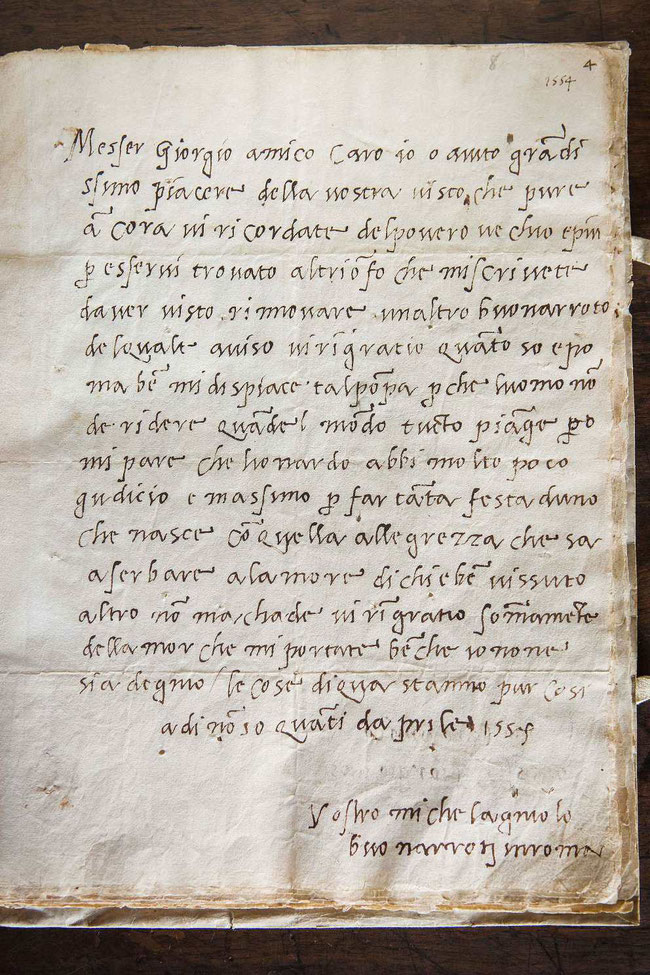 4
1554
Messer Giorgio amico caro io o auto grãdi
ssimo piacere della vostra visto che pure
ã cora vi ricordate delpovero ve chio e piu
p̱ esservi trovato altriõfo che mi scrivete
daver visto rinnovare unaltro buonarroto
delquale aviso viri͂gratio quãto so e po
ma be͂ midispiace talpõpa p̱che luomo nõ
de ridere quãdel mõdo tucto piãge p̱o
mi pare che lionardo abbi molto poco
gudicio e massimo p̱ far tãta festa duno
che nasce cõ quella allegrezza che sa
a serbare alamore di chi e be͂ vissuto
altro nõ macchade vi ri͂gratio sommame͂te
dellamor che mi portate be͂che io none
sia degnio / le cose di qua stanno pur cosi
adi nõ so quãti daprile 155
Vostro michelagniolo
buonarroti in roma